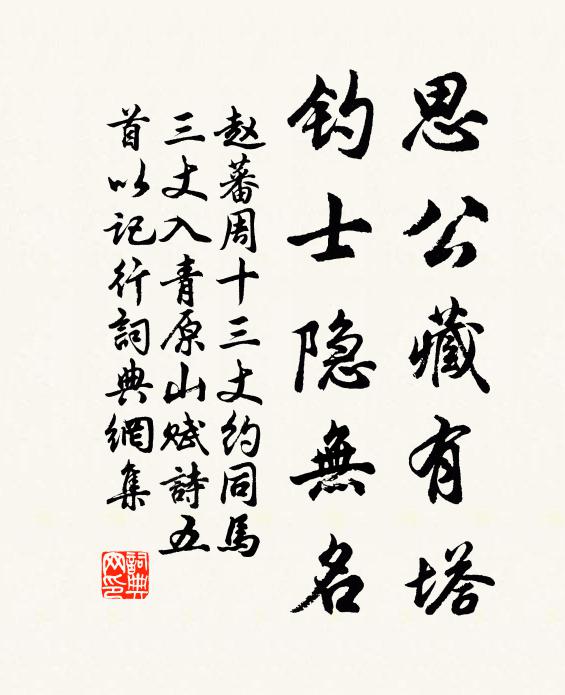 思公藏有塔
钓士隐無名
赵蕃周十三丈约同馬
三丈入青原山赋詩五
首以記行詞典網集
詞典
网印